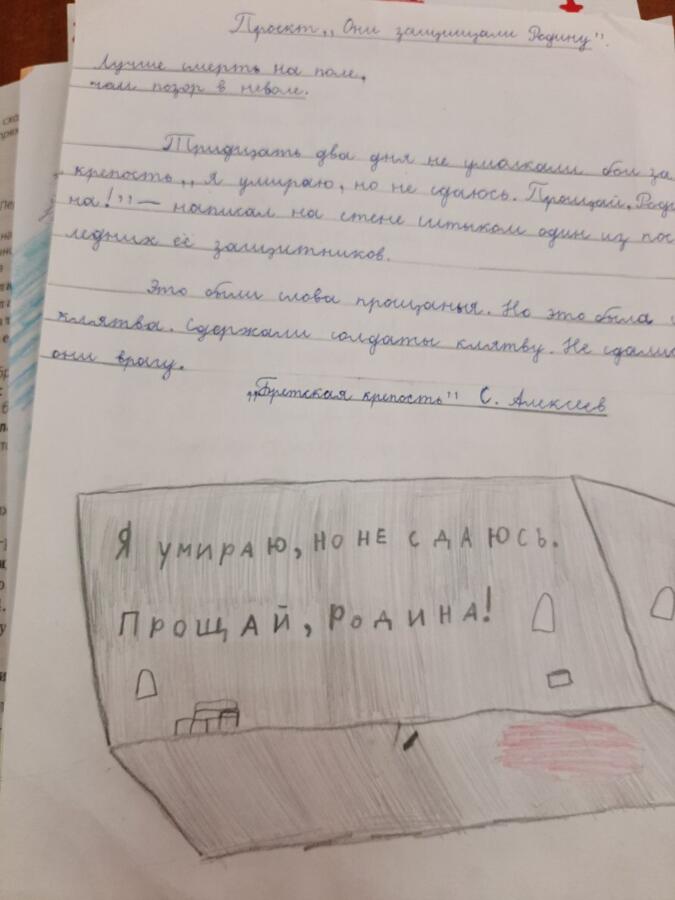 Проект „Они защищали Родину".
Лучше смерть на поле,
чем позор в неволе.
Тридцать два дня не умолкали бои за
крепость. „Я умираю, но не сдаюсь. Прощай, Роди
на!" — написал на стене штыком один из пос
ледних её защитников.
Это были слова прощанья. Но это была и
клятва. Сдержали солдаты клятву. Не сдали
они врагу.
„Бретская крепость" С. Алексеев
Я умираю, но не сдаюсь.
Прощай, Родина!